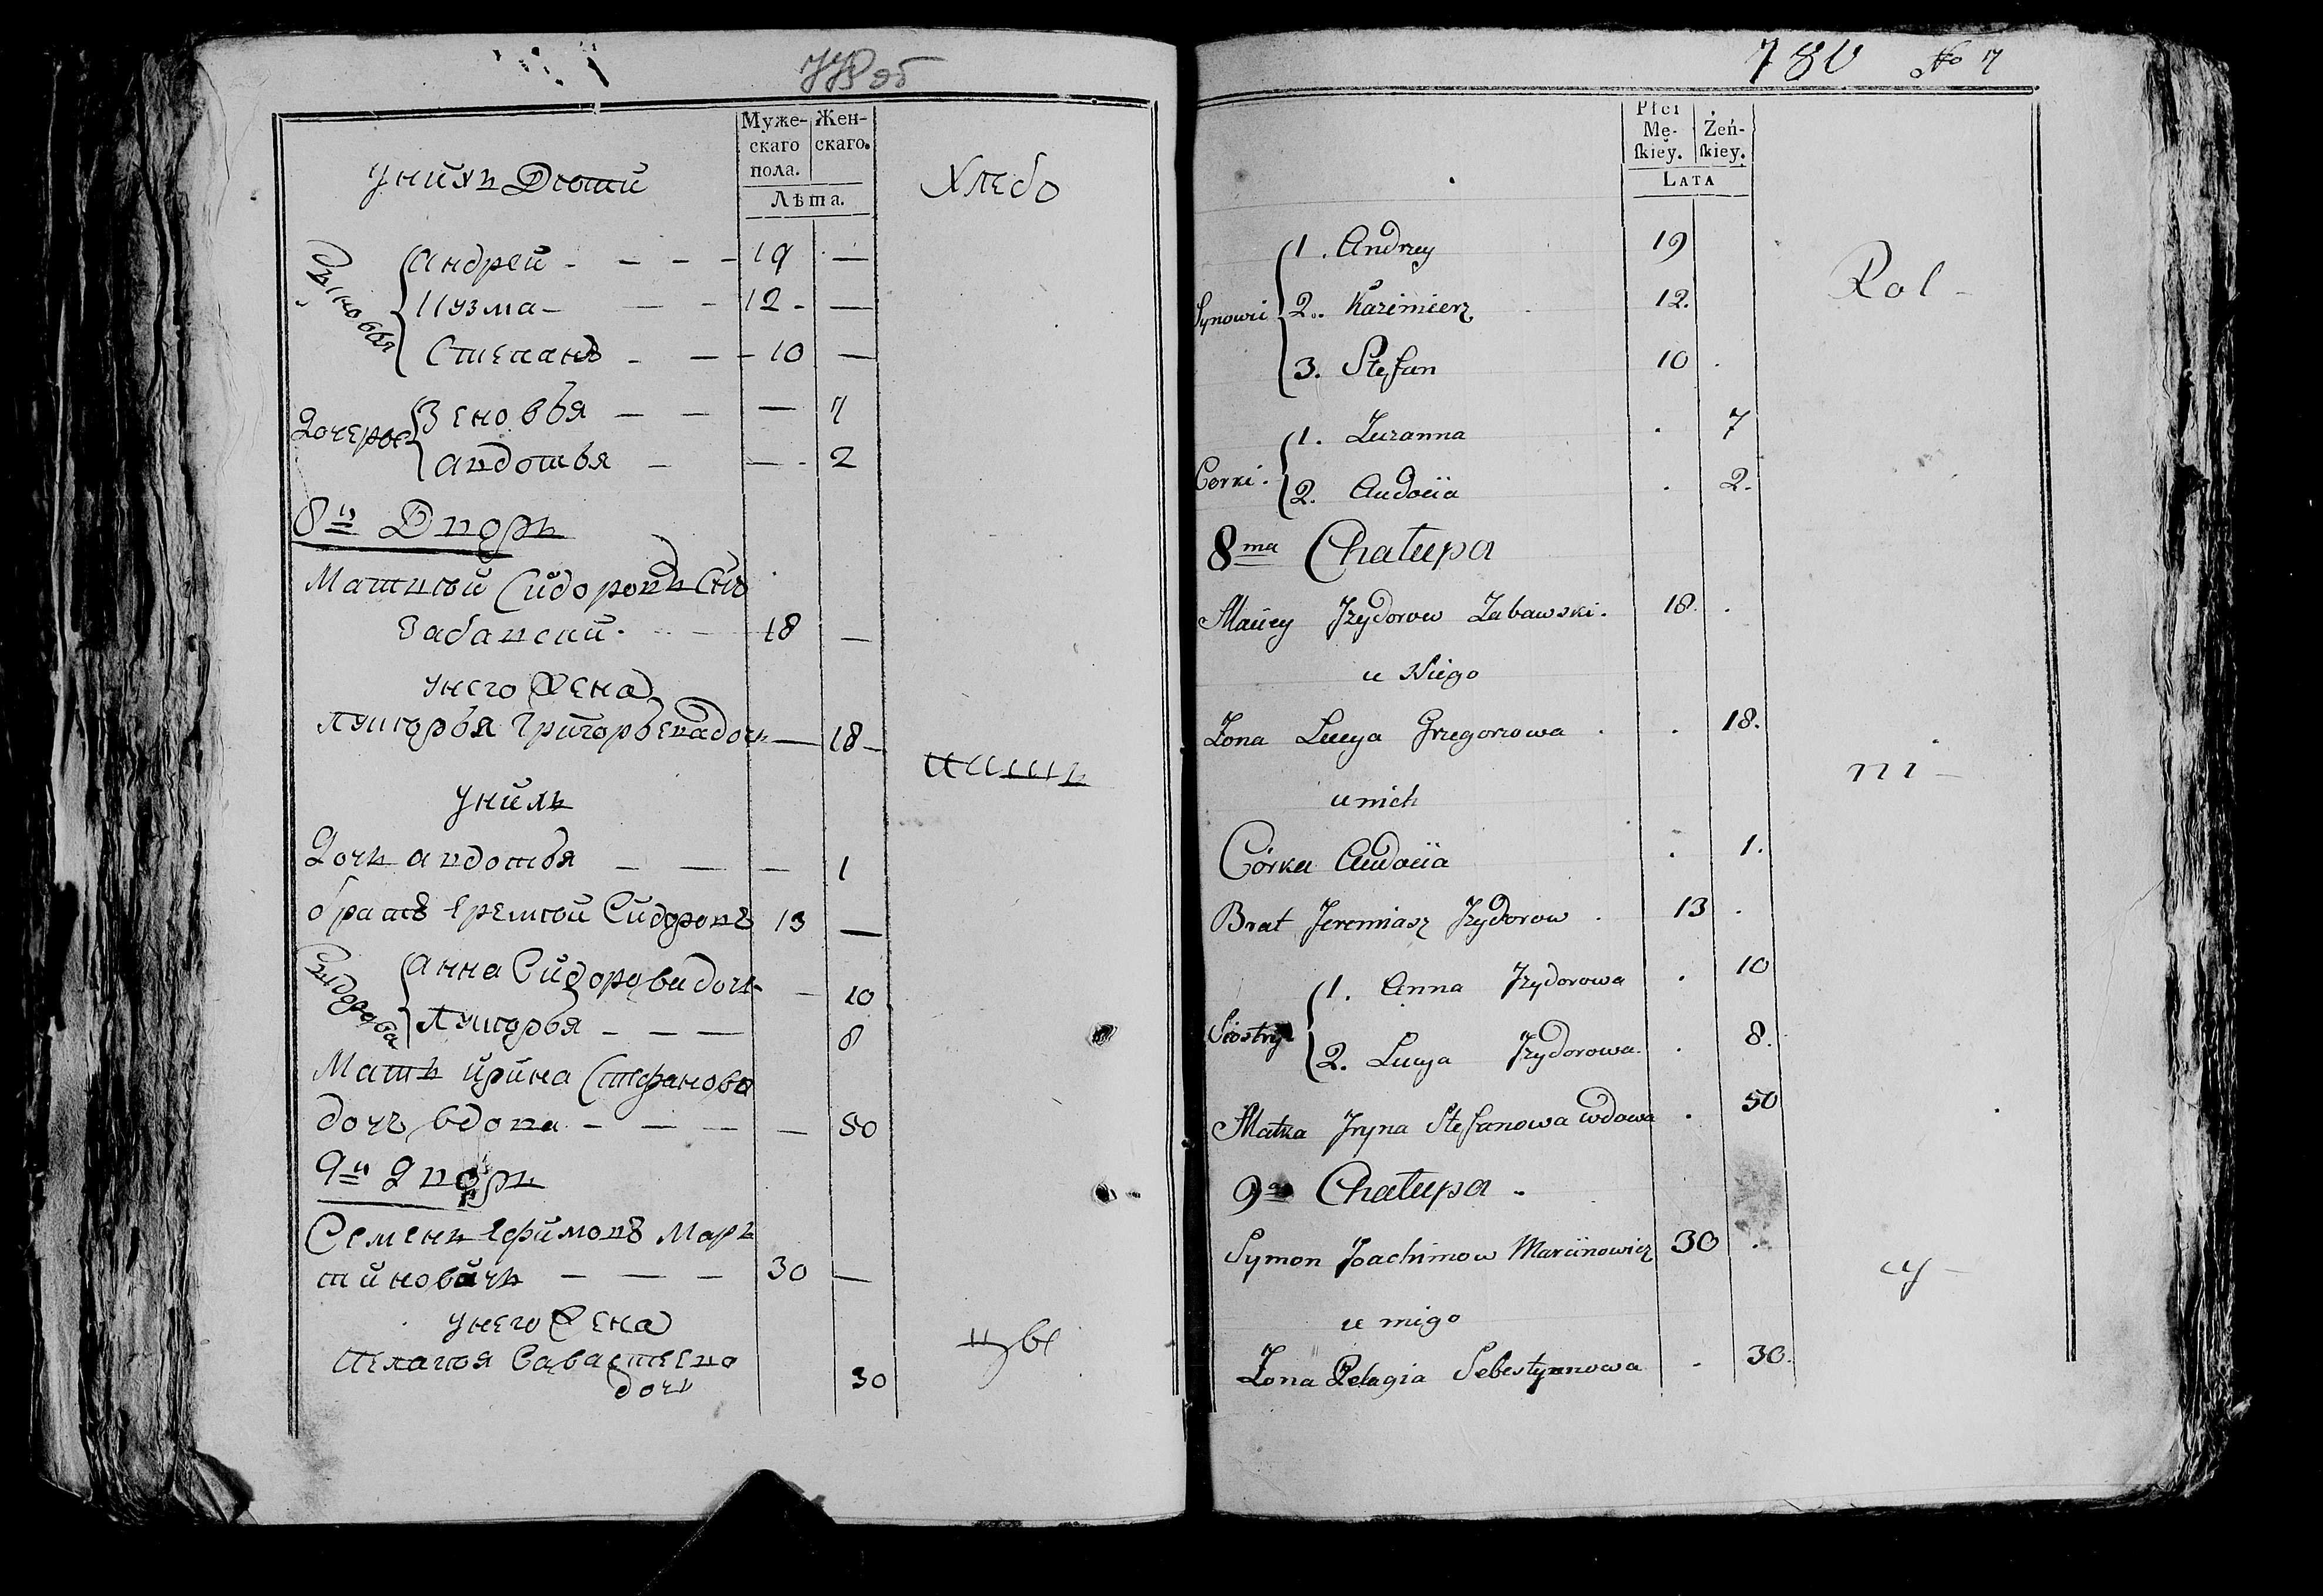 Муже-
скаго
пола.
Жен-
скаго.
Лѣта.
унихъ Дети
Хлебо
Сыновья
Андрей - - - - 19 —
Кузма - — - 12 - —
Степанъ - - - 10 —
Дочерье
Зеновья — — — 7
Авдотья — — - 2
8й Дворъ
Матвей Сидоровъ Снъ
Забавский. 18 —
унего Жена
Лукерья Григорьева дочь — 18 -
унихъ
Дочь Авдотья — — — 1
братъ Еремей Сидоровъ 13 —
Анна Сидорова дочь - 10
Лукерья - — — 8
Мать Ирина Стефанова
дочь вдова - — — — 50
9й Дворъ
Семенъ Ефимовъ Мар
тиновичь — — — 30 —
унего Жена
Пелагея Савастьено
дочь 30
пашъ
цы
780 No 7
Płci
Mę-
ſkiey.
Żeń-
ſkiey.
Lata
Synowi
1. Andrzey 19
2. Kazimierz 12.
3. Stefan 10 .
Rol -
Corki.
1. Zuzanna . 7
2. Audocia . 2.
8ma Chałupa
Maciey Jzydorow Zabawski. 18. .
u Niego
Zona Lucya Grzegorzowa . . 18.
u nich
ni -
Córka Audocia . 1.
Brat Jeremiasz Jzydorow . 13 .
Siostry
1. Anna Jzydorowa . 10
2. Lucya Jzydorowa. . 8.
Matka Jryna Stefanowa wdowa . 50
9a Chałupa.
Symon Joachimow Marcinowicz 30 .
cy -
u niego
Zona Pelagia Sebestyanowa . 30.